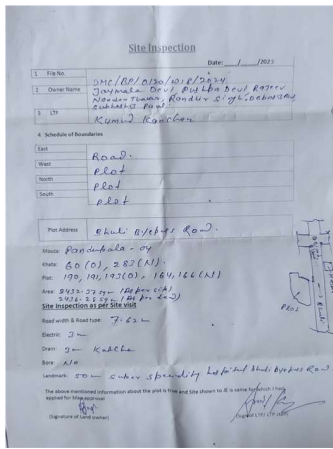 Site Inspection
Date: ___/___/2023
1 File No. DMC/BP/0120/W18/2024
2 Owner Name Jaymala Devi, Pushpa Devi, Rajeev
3 LTP Kumud Kanchan
4 Schedule of Boundaries
East Road.
West Plot
North Plot
South Plot
Plot Address Bhuli Byepass Road.
Mouza: Pandarpala - 04
Khata: 60 (O), 283 (N).
Plot: 190, 191, 193(O) - 164, 166 (N)
Area:
Site Inspection as per Site visit
Road width & Road type: 7.62 m
Electric: 3m
Drain: 2m Katcha
Bore: No
Landmark: 50m super speciality hospital bhuli Byepass Road
The above mentioned information about the plot is true and Site shown to JE is same for which I have
applied for Map approval
(Signature of Land owner)